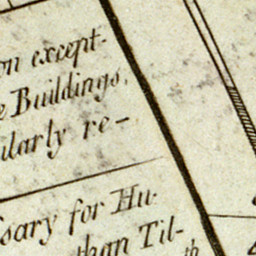 on except-
e Buildings,
ilarly re-
ssary for Hu-
than Til-
th